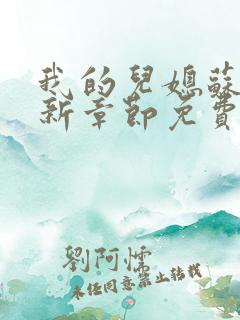 我的兒媳蘇
新章節免費
劉阿懦
未經同意禁止轉載